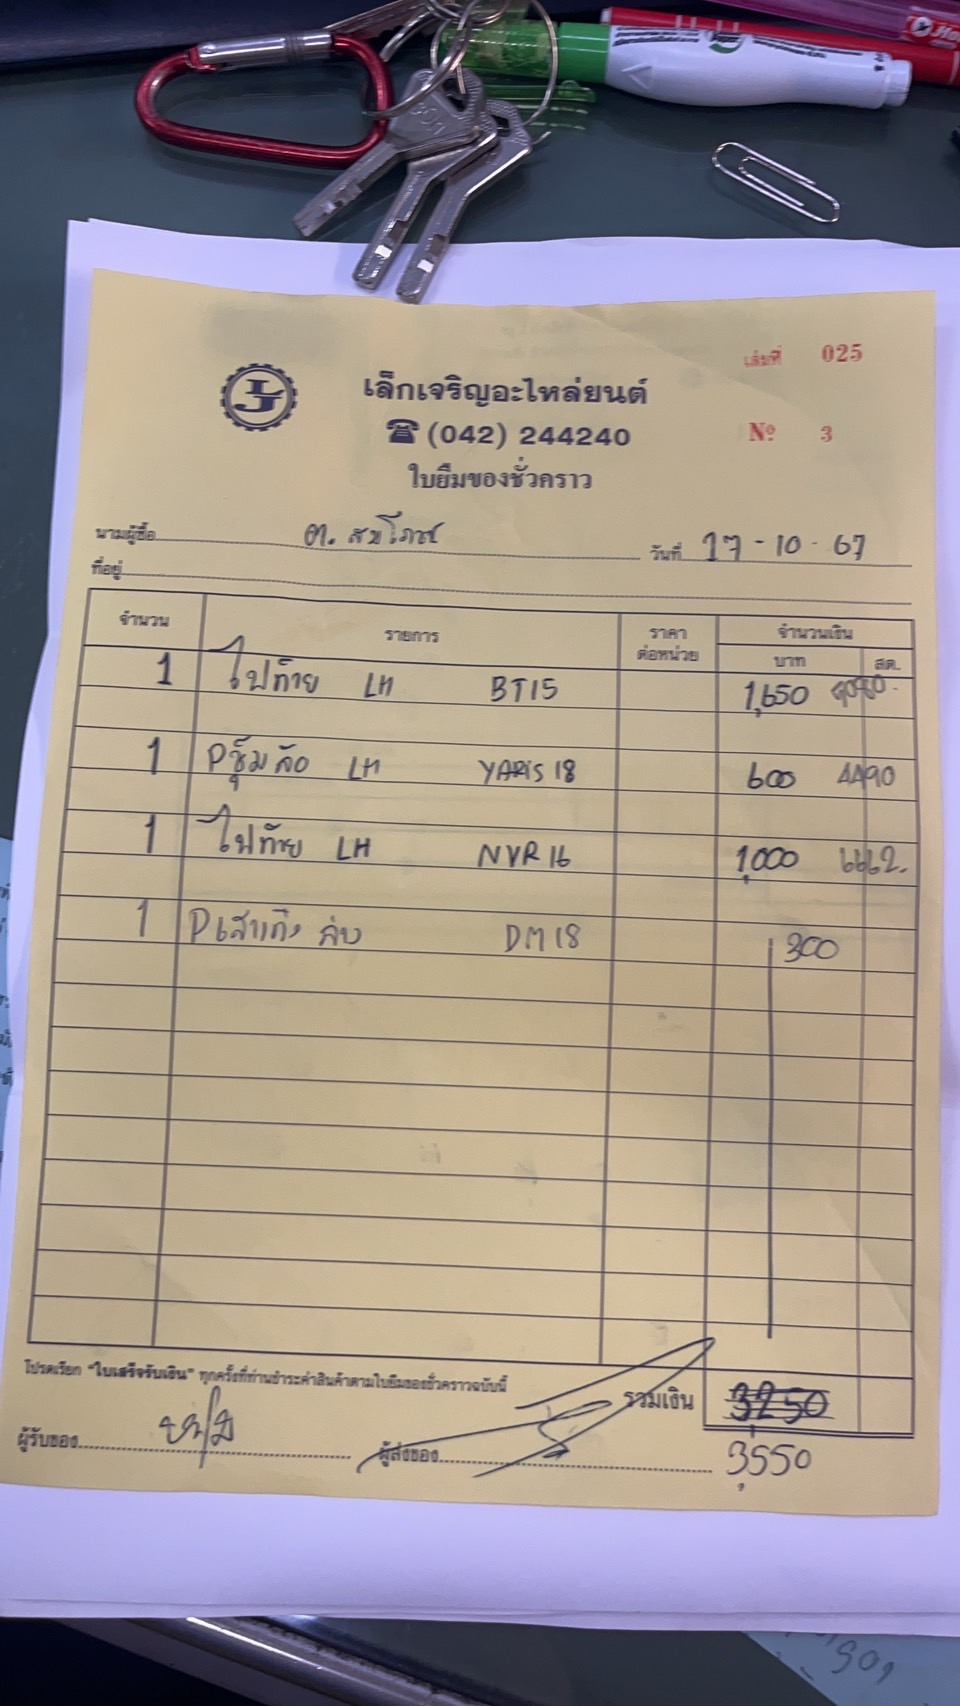 เล่มที่ 025
เล็กเจริญอะไหล่ยนต์
☎ (042) 244240
Nº 3
ใบยืมของชั่วคราว
นามผู้ซื้อ ต. สมโภช วันที่ 17 - 10 - 67
ที่อยู่
จำนวน รายการ ราคาต่อหน่วย จำนวนเงิน
บาท สต.
1 ไฟท้าย LH BT15 1,650 9080.
1 Pซุ้มล้อ LH YARIS 18 600 4490
1 ไฟท้าย LH NVR 16 1,000 6662.
1 Pเสาเก๋ง DM18 300
โปรดเรียก "ใบเสร็จรับเงิน" ทุกครั้งที่ท่านชำระค่าสินค้าตามใบยืมของชั่วคราวฉบับนี้
รวมเงิน 3250
3,550
ผู้รับของ ผู้ส่งของ